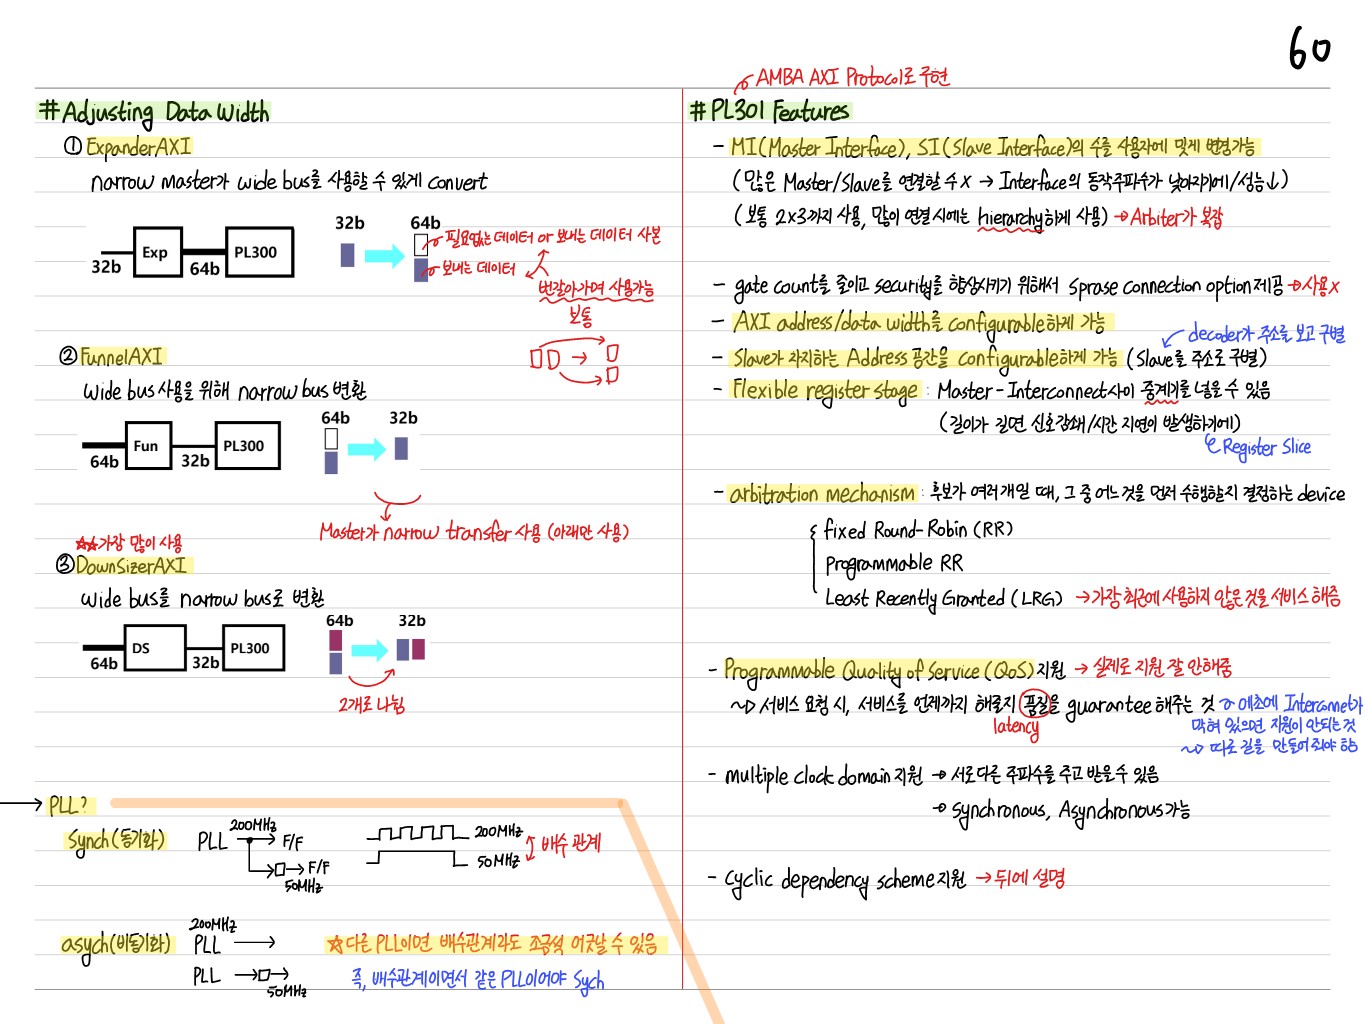 60
# Adjusting Data Width
① ExpanderAXI
narrow master가 wide bus를 사용할 수 있게 convert
32b Exp 64b PL300
32b 64b
필요없는 데이터 or 보내는 데이터 사본
보내는 데이터
번갈아가며 사용가능
보통
② FunnelAXI
wide bus 사용을 위해 narrow bus 변환
64b Fun 32b PL300
64b 32b
Master가 narrow transfer 사용 (아래만 사용)
☆☆가장 많이 사용
③ DownSizerAXI
wide bus를 narrow bus로 변환
64b DS 32b PL300
64b 32b
2개로 나뉨
→ PLL?
Synch(동기화)
PLL 200MHz → F/F
□→F/F
50MHz
200MHz
50MHz
배수 관계
asych(비동기화)
200MHz
PLL →
PLL →□→
50MHz
☆다른 PLL이면 배수관계라도 조금씩 어긋날 수 있음
즉, 배수관계이면서 같은 PLL이어야 Sych
AMBA AXI Protocol로 구현
# PL301 Features
- MI(Master Interface), SI(Slave Interface)의 수를 사용자에 맞게 변경가능
(많은 Master/Slave를 연결할 수 X → Interface의 동작주파수가 낮아지기에/성능↓)
(보통 2x3까지 사용, 많이 연결시에는 hierarchy하게 사용) →Arbiter가 복잡
- gate count를 줄이고 security를 향상시키기 위해서 sprase connection option 제공 →사용X
- AXI address/data width를 configurable하게 가능
decoder가 주소를 보고 구별
- Slave가 차지하는 Address 공간을 configurable하게 가능 (Slave를 주소로 구별)
- Flexible register stage : Master-Interconnect사이 중계기를 넣을 수 있음
(길이가 길면 신호감쇄/시간 지연이 발생하기에)
Register Slice
- arbitration mechanism : 후보가 여러개일 때, 그 중 어느것을 먼저 수행할지 결정하는 device
fixed Round-Robin (RR)
Programmable RR
Least Recently Granted (LRG) →가장 최근에 사용하지 않은 것을 서비스 해줌
- Programmable Quality of Service (QoS) 지원 → 실제로 지원 잘 안해줌
서비스 요청 시, 서비스를 언제까지 해줄지 품질을 guarantee 해주는 것
latency
애초에 Interconnet가
막혀 있으면 지원이 안되는 것
따로 길을 만들어줘야 함
- multiple clock domain 지원 → 서로 다른 주파수를 주고 받을 수 있음
→ Synchronous, Asynchronous 가능
- cyclic dependency scheme 지원 →뒤에 설명